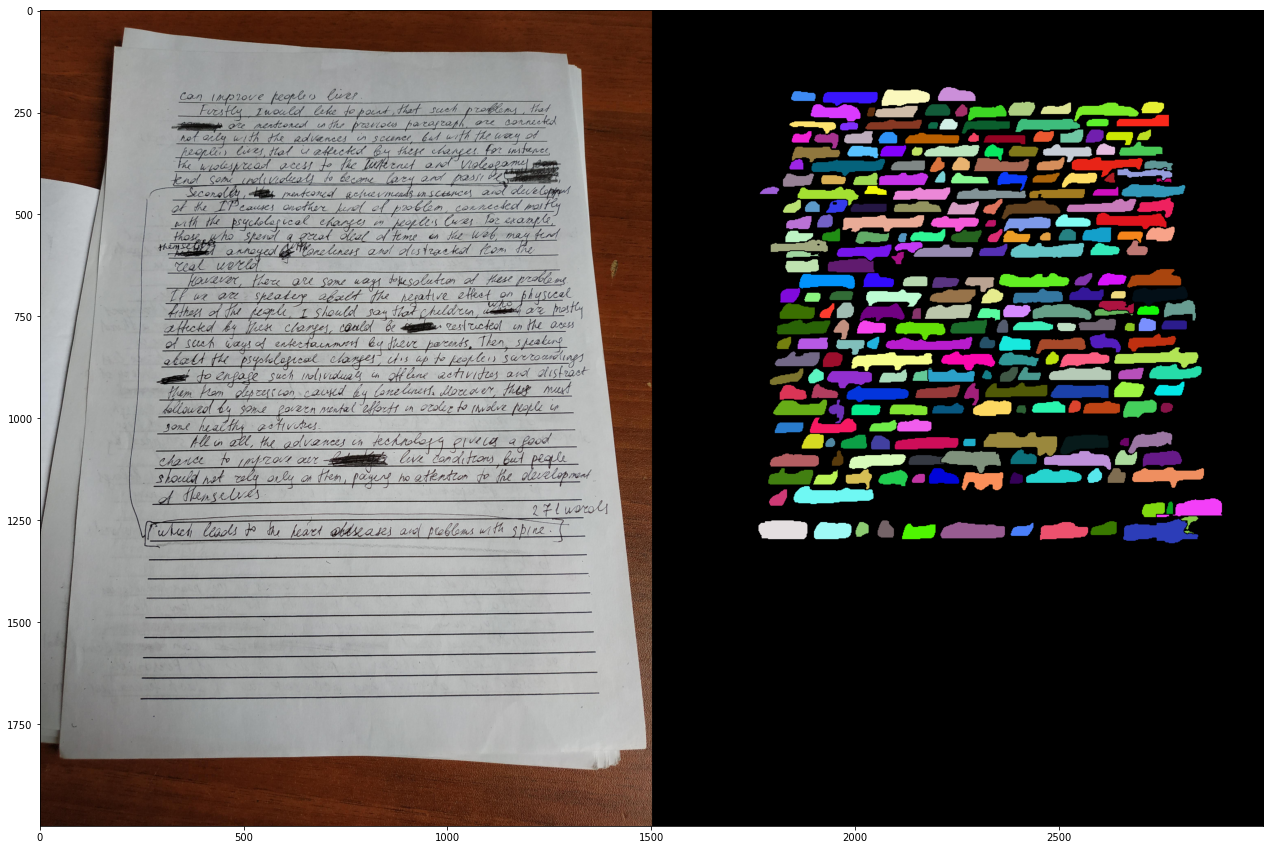 can improve people's lives
Firstly I would like to point, that such problems, that
are mentioned in the previous paragraph, are connected
not only with the advances in science, but with the way of
people's lives, that is affected by these changes. For instance,
the widespread acess to the Internet and videogames
tend some individuals to become lazy and passive
Secondly, mentioned achievments in sciences and development
of the IT causes another kind of problem connected mostly
with the psychological changes in people's lives. For example,
those, who spend a great deal of time on the web, may tend
themselves annoyed with loneliness and distracted from the
real world
However, there are some ways to resolution of these problems
If we are speaking about the negative effect on physical
fitness of the people, I should say that children, who are mostly
affected by these changes, could be restricted in the acess
of such ways of entertainment by there parents. Then, speaking
about the psychological changes, it is up to people's surroundings
to engage such individuals in offline activities and distract
them from depression caused by loneliness. Moreover, this must
followed by some governmental efforts in order to involve people in
some healthy activities.
All in all, the advances in technology give us a good
chance to improve our live conditions, but people
should not rely only on them, paying no attention to the development
of themselves
271 words
which leads to the heart diseases and problems with spine.
0
250
500
750
1000
1250
1500
1750
0 500 1000 1500 2000 2500